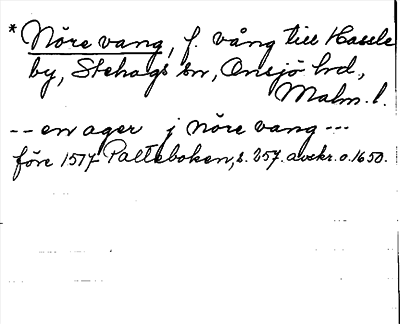 * Nöre vang, f. vång till Hassle
by, Stehags sn, Onsjö hd,
Malm. l.
-- en ager j nöre vang ---
före 1517 Palteboken, s. 257. avskr. o. 1650.